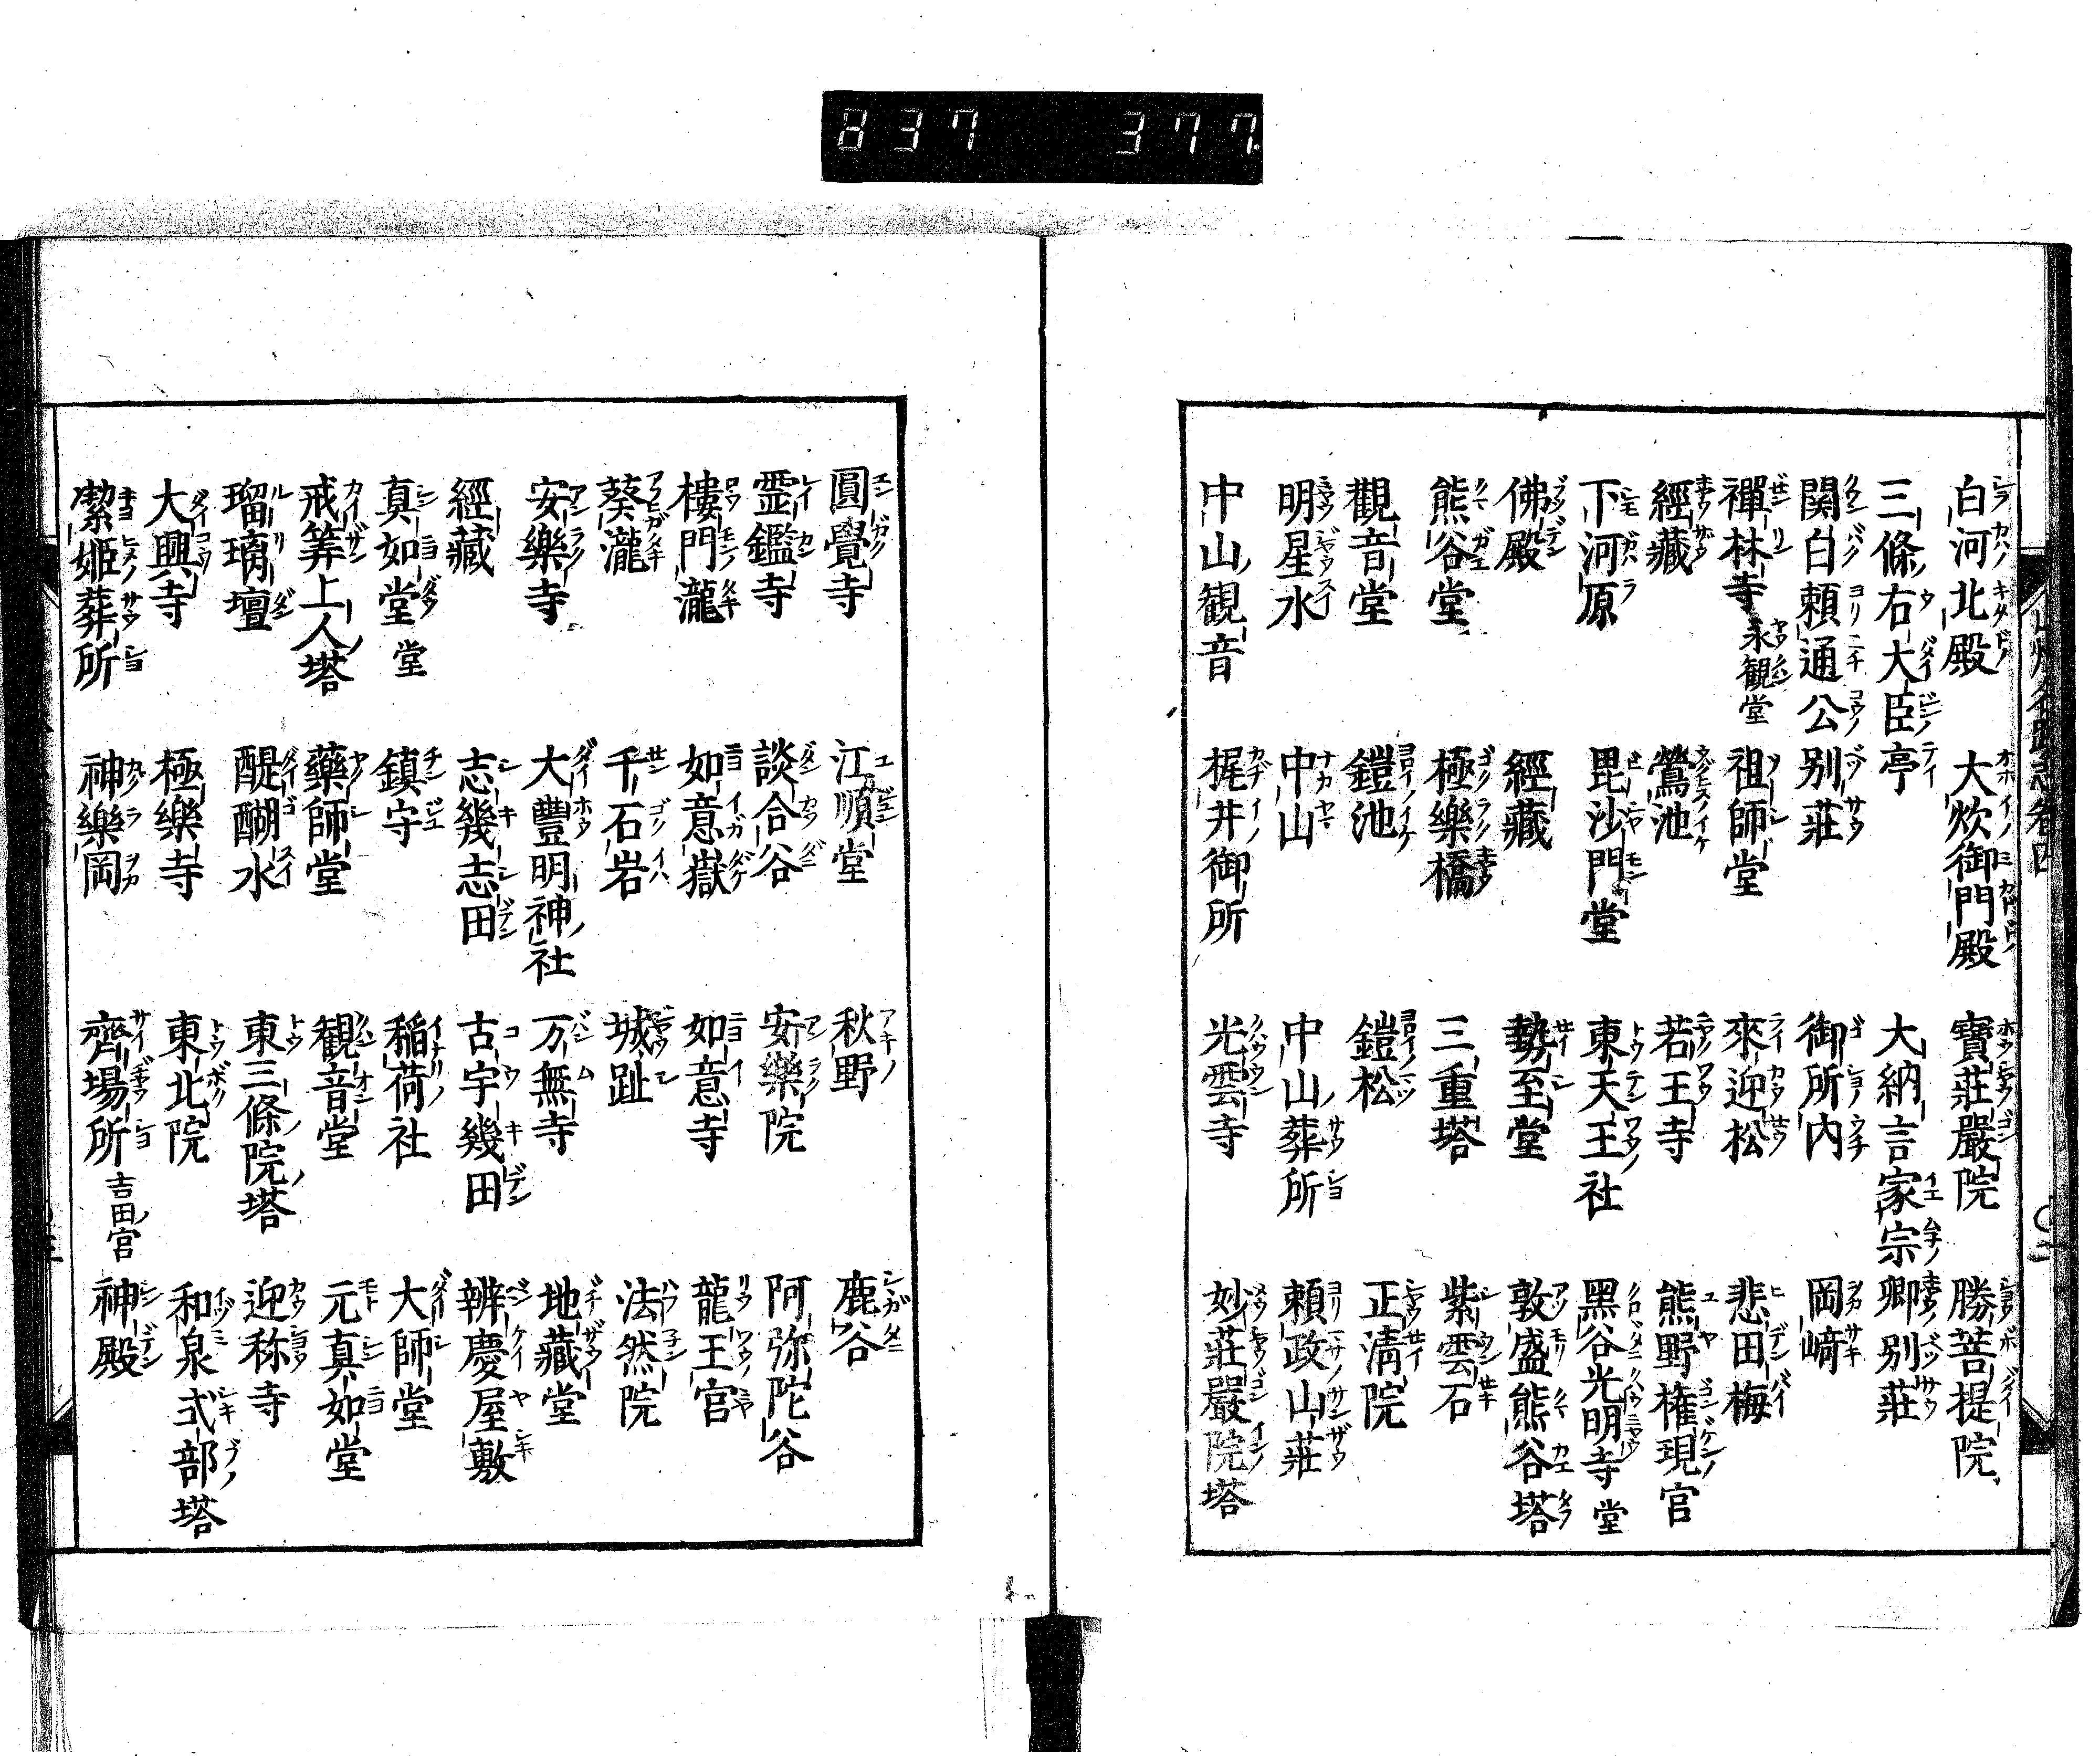 837 377
白河北殿 大炊御門殿 寶莊嚴院 勝菩提院
三條右大臣亭 大納言家宗卿別莊
関白頼通公別莊 御所内 岡﨑
禪林寺 永観堂 祖師堂 來迎松 悲田梅
經藏 鶯池 若王寺 熊野権現宮
下河原 毘沙門堂 東天王社 黑谷光明寺 堂
佛殿 經藏 勢至堂 敦盛熊谷塔
熊谷堂 極樂橋 三重塔 紫雲石
觀音堂 鎧池 鎧松 正清院
明星水 中山 中山葬所 頼政山莊
中山観音 梶井御所 光雲寺 妙莊嚴院塔
圓覺寺 江順堂 秋野 鹿谷
霊鑑寺 談合谷 安樂院 阿弥陀谷
樓門瀧 如意嶽 如意寺 龍王宮
葵瀧 千石岩 城趾 法然院
安樂寺 大豐明神社 万無寺 地藏堂
經藏 志幾志田 古宇幾田 辨慶屋敷
真如堂 堂 鎮守 稲荷社 大師堂
戒筭上人塔 藥師堂 観音堂 元真如堂
瑠璃壇 醍醐水 東三條院塔 迎称寺
大興寺 極樂寺 東北院 和泉式部塔
潔姫葬所 神樂岡 齊場所 吉田宮 神殿